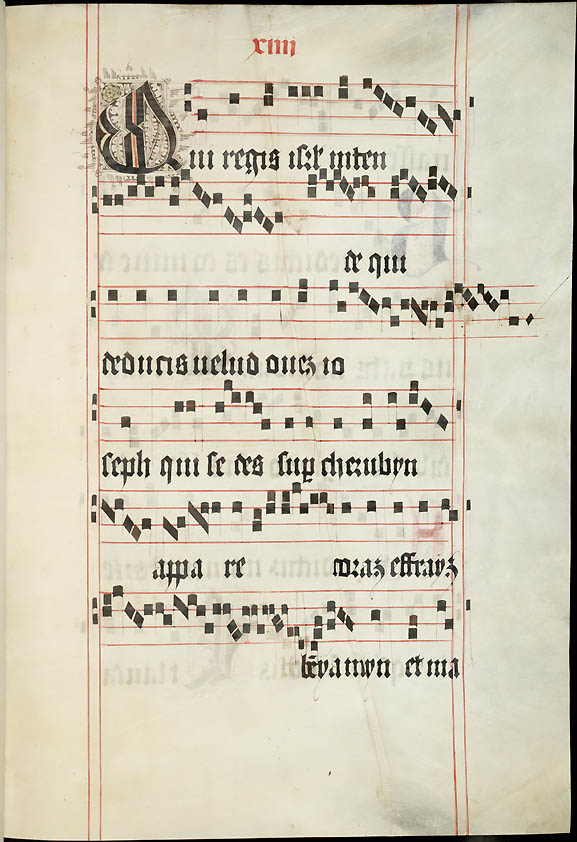 xiiij
Qui regis isrl inten
de qui
deducis uelud ouez io
seph qui se des sup cherubyn
appa re coraz effrayz
benyamyn et ma